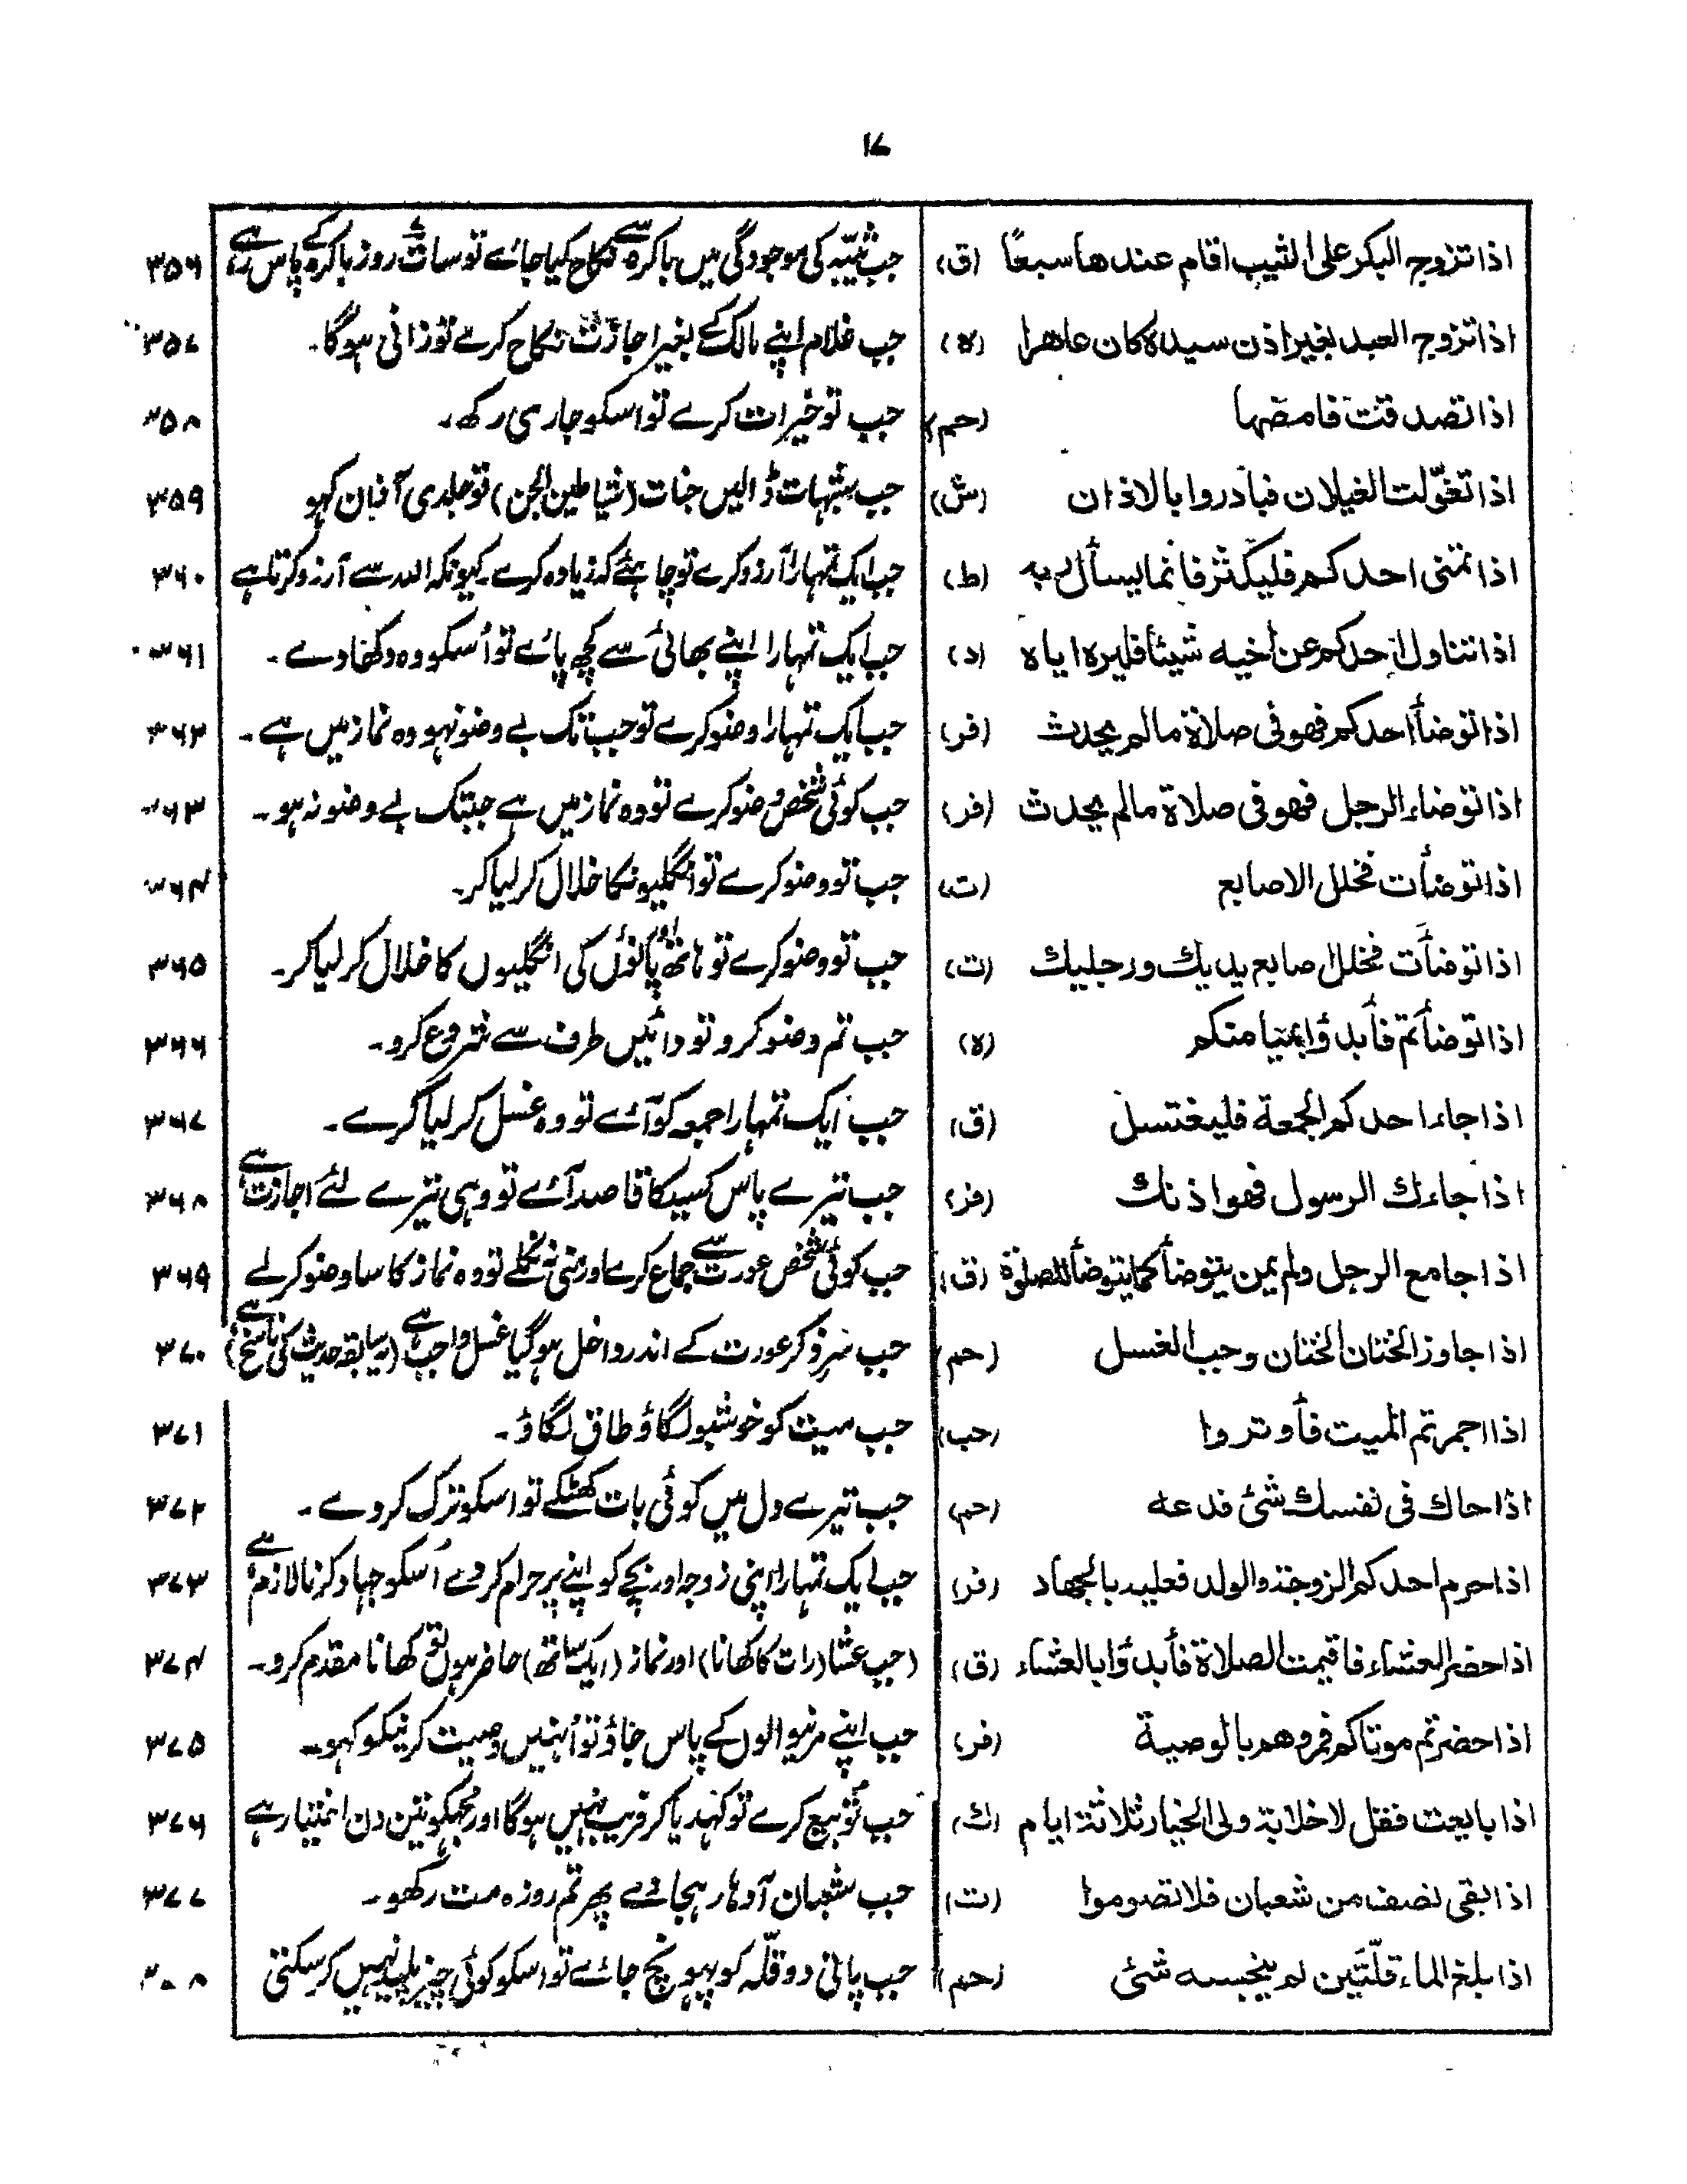 ١٧
اذا تزوج البكر على الثيب اقام عندها سبعًا (ق) جب ثیبہ کی موجودگی میں باکرہ سے نکاح کیا جائے تو سات روز باکرہ کے پاس رہے ۳۵۶
اذا تزوج العبد بغير اذن سيده كان عاهرا (ه) جب غلام اپنے مالک کے بغیر اجازت نکاح کرے تو زانی ہوگا۔ ۳۵۷
اذا تصدقت فامضها (حم) جب تو خیرات کرے تو اسکو جاری رکھ۔ ۳۵۸
اذا تغوّلت الغيلان فبادروا بالاذان (ش) جب شبہات ڈالیں جنات (شیاطین الجن) تو جلدی آذان کہو ۳۵۹
اذا تمنى احدكم فليكثر فانما يسأل ربه (ط) جب ایک تمہارا آرزو کرے تو چاہئے کہ زیادہ کرے۔ کیونکہ اللہ سے آرزو کرتا ہے ۳۶۰
اذا تناول احدكم عن أخيه شيئا فليره اياه (د) جب ایک تمہارا اپنے بھائی سے کچھ پائے تو اُسکو وہ دکھا دے۔ ۳۶۱
اذا توضأ احدكم فهو فى صلاة مالم يحدث (فر) جب ایک تمہارا وضو کرے تو جب تک بے وضو نہو وہ نماز میں ہے۔ ۳۶۲
اذا توضاء الرجل فهو فى صلاة مالم يحدث (فر) جب کوئی شخص وضو کرے تو وہ نماز میں ہے جبتک بے وضو نہ ہو۔ ۳۶۳
اذا توضأت فخلل الاصابع (ت) جب تو وضو کرے تو انگلیونکا خلال کر لیا کر۔ ۳۶۴
اذا توضأت فخلل اصابع يديك ورجليك (ت) جب تو وضو کرے تو ہاتھ اور پاؤں کی انگلیوں کا خلال کر لیا کر۔ ۳۶۵
اذا توضأتم فأبدؤا بميامنكم (ه) جب تم وضو کرو تو دائیں طرف سے شروع کرو۔ ۳۶۶
اذا جاء احدكم الجمعة فليغتسل (ق) جب ایک تمہارا جمعہ کو آئے تو وہ غسل کر لیا کرے۔ ۳۶۷
اذا جاءك الرسول فهو اذنك (فر) جب تیرے پاس کسیکا قاصد آئے تو وہی تیرے لئے اجازت ہے ۳۶۸
اذا جامع الرجل ولم يمن يتوضأ كما يتوضأ للصلوة (ق) جب کوئی شخص عورت سے جماع کرے اور منی نہ نکلے تو وہ نماز کا سا وضو کر لے ۳۶۹
اذا جاوز الختان الختان وجب الغسل (حم) جب سرِ ذکر عورت کے اندر داخل ہو گیا غسل واجب ہے (یہ سابقہ حدیث کی ناسخ ہے) ۳۷۰
اذا اجمرتم الميت فأوتروا (حب) جب میت کو خوشبو لگاؤ طاق لگاؤ۔ ۳۷۱
اذا حاك فى نفسك شئ فدعه (حم) جب تیرے دل میں کوئی بات کھٹکے تو اسکو ترک کر دے۔ ۳۷۲
اذا حرم احدكم الزوجة والولد فعليه بالجهاد (فر) جب ایک تمہارا اپنی زوجہ اور بچے کو اپنے پر حرام کر دے اُسکو جہاد کرنا لازم ہے ۳۷۳
اذا حضر العشاء فاقيمت الصلاة فأبدؤا بالعشاء (ق) (جب عشا (رات کا کھانا) اور نماز (ایک ساتھ) حاضر ہوں تو کھانا مقدم کرو۔ ۳۷۴
اذا حضرتم موتاكم فمروهم بالوصية (فر) جب اپنے مرنیوالوں کے پاس جاؤ تو اُنہیں وصیت کرنیکو کہو۔ ۳۷۵
اذا بايعت فقل لا خلابة ولى الخيار ثلاثة ايام (ك) جب تو بیع کرے تو کہدیا کر فریب نہیں ہوگا اور مجہکو تین دن اختیار ہے ۳۷۶
اذا بقى نصف من شعبان فلا تصوموا (ت) جب شعبان آدہا رہجائے پھر تم روزہ مت رکھو۔ ۳۷۷
اذا بلغ الماء قلّتين لم ينجسه شئ (حم) جب پانی دو قلّہ کو پہونچ جائے تو اسکو کوئی چیز پلید نہیں کر سکتی